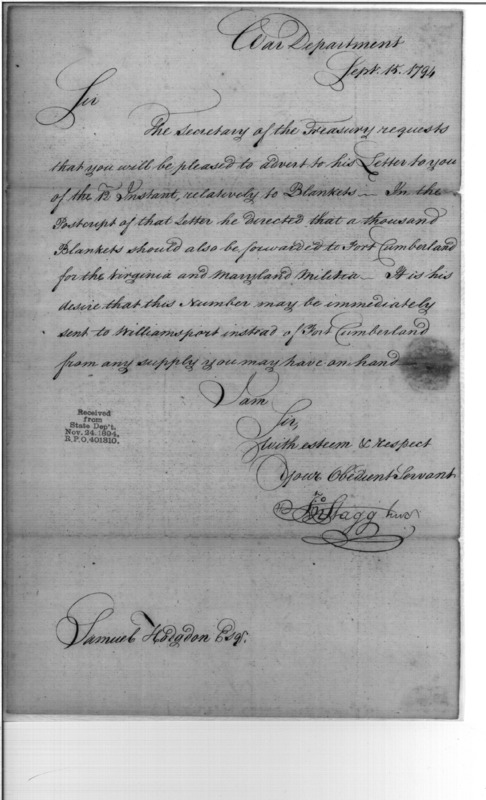 War Department
Sept. 15. 1794
Sir
The Secretary of the Treasury requests
that you will be pleased to advert to his Letter to you
of the 12 Instant, relatively to Blankets — In the
Postcript of that Letter he directed that a thousand
Blankets should also be forwarded to Fort Cumberland
for the Virginia and Maryland Militia — It is his
desire that this Number may be immediately
sent to Williamsport instead of Fort Cumberland
from any supply you may have on hand —
I am
Sir,
with esteem & respect
Your Obedient Servant
Jno Stagg Junr
Received
from
State Dep't.
Nov. 24. 1894,
R. P. O. 401310.
Samuel Hodgdon Esqr.